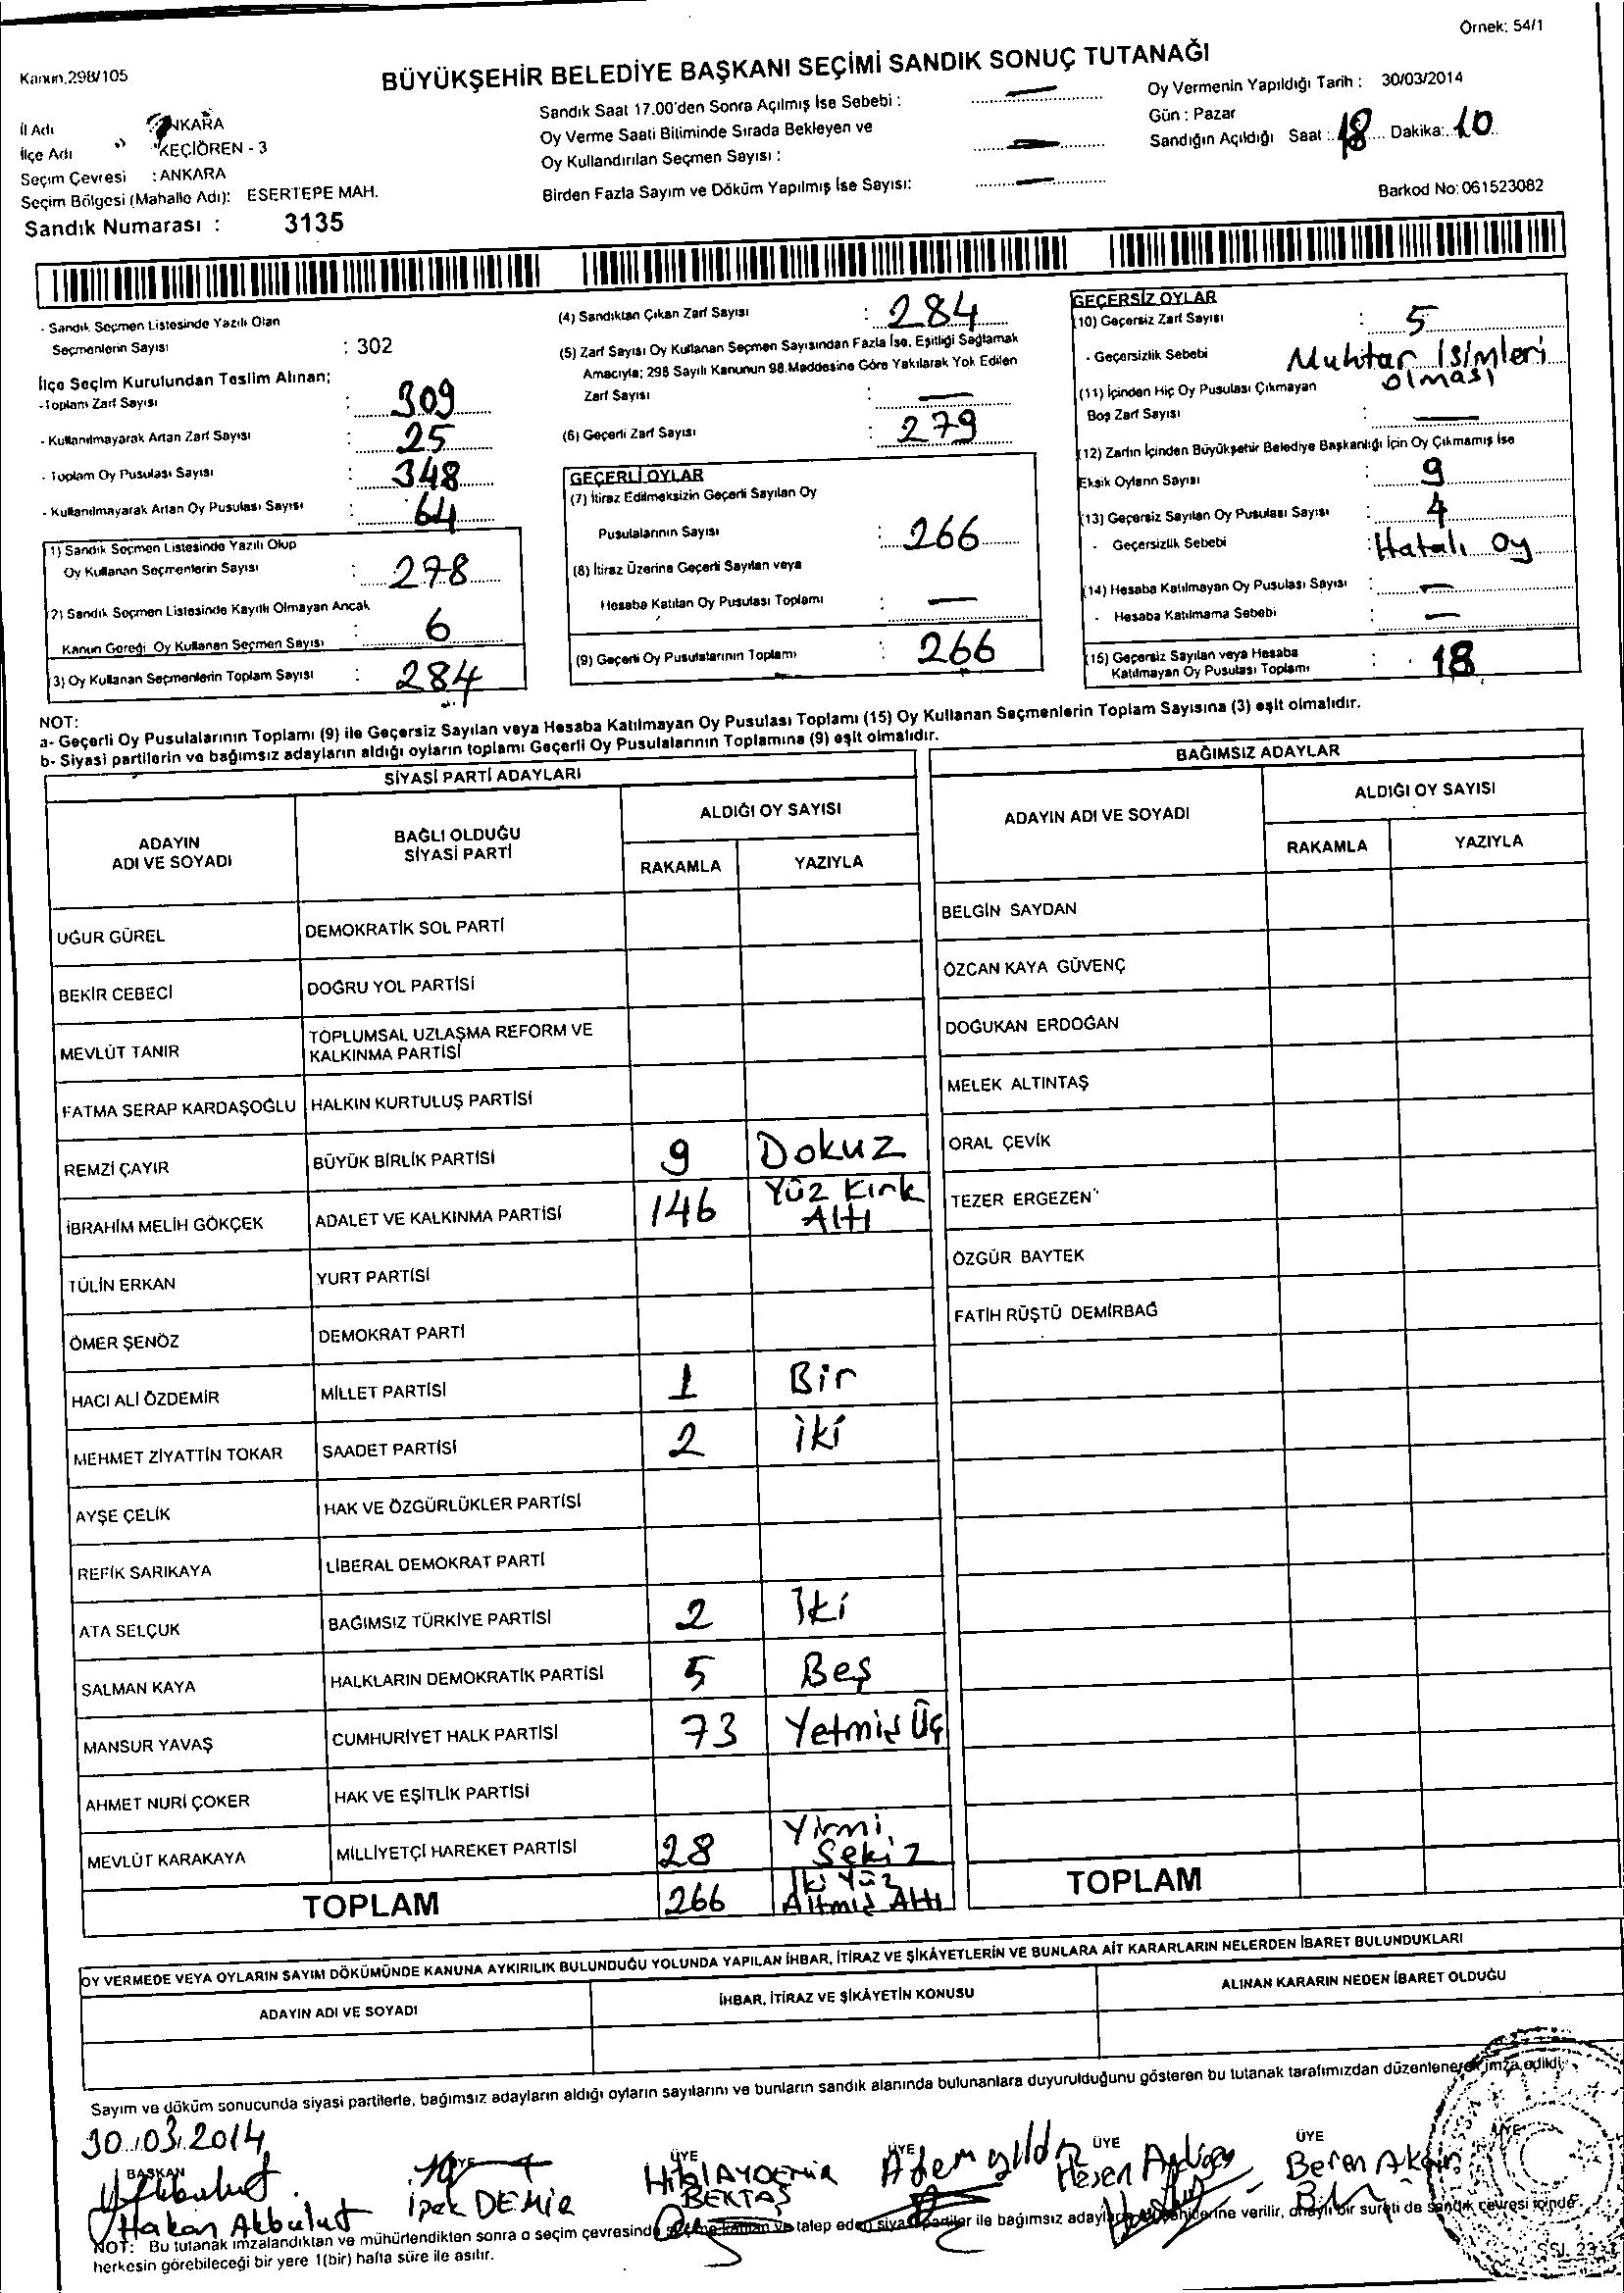 Örnek: 54/1
Kanun.298/105
BÜYÜKŞEHİR BELEDİYE BAŞKANI SEÇİMİ SANDIK SONUÇ TUTANAĞI
İl Adı ANKARA
İlçe Adı KEÇİÖREN - 3
Seçim Çevresi : ANKARA
Seçim Bölgesi (Mahalle Adı): ESERTEPE MAH.
Sandık Numarası : 3135
Sandık Saat 17.00'den Sonra Açılmış İse Sebebi : —
Oy Verme Saati Bitiminde Sırada Bekleyen ve
Oy Kullandırılan Seçmen Sayısı : —
Birden Fazla Sayım ve Döküm Yapılmış İse Sayısı: —
Oy Vermenin Yapıldığı Tarih : 30/03/2014
Gün : Pazar
Sandığın Açıldığı Saat : 18 Dakika: 10
Barkod No: 061523082
- Sandık Seçmen Listesinde Yazılı Olan
Seçmenlerin Sayısı : 302
İlçe Seçim Kurulundan Teslim Alınan;
-Toplam Zarf Sayısı : 309
- Kullanılmayarak Artan Zarf Sayısı : 25
- Toplam Oy Pusulası Sayısı : 348
- Kullanılmayarak Artan Oy Pusulası Sayısı : 64
1) Sandık Seçmen Listesinde Yazılı Olup
Oy Kullanan Seçmenlerin Sayısı : 278
2) Sandık Seçmen Listesinde Kayıtlı Olmayan Ancak
Kanun Gereği Oy Kullanan Seçmen Sayısı : 6
3) Oy Kullanan Seçmenlerin Toplam Sayısı : 284
(4) Sandıktan Çıkan Zarf Sayısı : 284
(5) Zarf Sayısı Oy Kullanan Seçmen Sayısından Fazla İse, Eşitliği Sağlamak
Amacıyla; 298 Sayılı Kanunun 98.Maddesine Göre Yakılarak Yok Edilen
Zarf Sayısı : —
(6) Geçerli Zarf Sayısı : 279
GEÇERLİ OYLAR
(7) İtiraz Edilmeksizin Geçerli Sayılan Oy
Pusulalarının Sayısı : 266
(8) İtiraz Üzerine Geçerli Sayılan veya
Hesaba Katılan Oy Pusulası Toplamı : —
(9) Geçerli Oy Pusulalarının Toplamı : 266
GEÇERSİZ OYLAR
(10) Geçersiz Zarf Sayısı : 5
- Geçersizlik Sebebi Muhtar isimleri
olması
(11) İçinden Hiç Oy Pusulası Çıkmayan
Boş Zarf Sayısı : —
(12) Zarfın İçinden Büyükşehir Belediye Başkanlığı İçin Oy Çıkmamış İse
Eksik Oyların Sayısı : 9
(13) Geçersiz Sayılan Oy Pusulası Sayısı : 4
- Geçersizlik Sebebi : Hatalı oy
(14) Hesaba Katılmayan Oy Pusulası Sayısı : —
- Hesaba Katılmama Sebebi : —
(15) Geçersiz Sayılan veya Hesaba
Katılmayan Oy Pusulası Toplamı : 18
NOT:
a- Geçerli Oy Pusulalarının Toplamı (9) ile Geçersiz Sayılan veya Hesaba Katılmayan Oy Pusulası Toplamı (15) Oy Kullanan Seçmenlerin Toplam Sayısına (3) eşit olmalıdır.
b- Siyasi partilerin ve bağımsız adayların aldığı oyların toplamı Geçerli Oy Pusulalarının Toplamına (9) eşit olmalıdır.
SİYASİ PARTİ ADAYLARI
ADAYIN ADI VE SOYADI BAĞLI OLDUĞU SİYASİ PARTİ ALDIĞI OY SAYISI
RAKAMLA YAZIYLA
UĞUR GÜREL DEMOKRATİK SOL PARTİ
BEKİR CEBECİ DOĞRU YOL PARTİSİ
MEVLÜT TANIR TOPLUMSAL UZLAŞMA REFORM VE KALKINMA PARTİSİ
FATMA SERAP KARDAŞOĞLU HALKIN KURTULUŞ PARTİSİ
REMZİ ÇAYIR BÜYÜK BİRLİK PARTİSİ 9 Dokuz
İBRAHİM MELİH GÖKÇEK ADALET VE KALKINMA PARTİSİ 146 Yüz Kırk Altı
TÜLİN ERKAN YURT PARTİSİ
ÖMER ŞENÖZ DEMOKRAT PARTİ
HACI ALİ ÖZDEMİR MİLLET PARTİSİ 1 Bir
MEHMET ZİYATTİN TOKAR SAADET PARTİSİ 2 iki
AYŞE ÇELİK HAK VE ÖZGÜRLÜKLER PARTİSİ
REFİK SARIKAYA LİBERAL DEMOKRAT PARTİ
ATA SELÇUK BAĞIMSIZ TÜRKİYE PARTİSİ 2 İki
SALMAN KAYA HALKLARIN DEMOKRATİK PARTİSİ 5 Beş
MANSUR YAVAŞ CUMHURİYET HALK PARTİSİ 73 Yetmiş Üç
AHMET NURİ ÇOKER HAK VE EŞİTLİK PARTİSİ
MEVLÜT KARAKAYA MİLLİYETÇİ HAREKET PARTİSİ 28 Yirmi Sekiz
TOPLAM 266 İki Yüz Altmış Altı
BAĞIMSIZ ADAYLAR
ADAYIN ADI VE SOYADI ALDIĞI OY SAYISI
RAKAMLA YAZIYLA
BELGİN SAYDAN
ÖZCAN KAYA GÜVENÇ
DOĞUKAN ERDOĞAN
MELEK ALTINTAŞ
ORAL ÇEVİK
TEZER ERGEZEN
ÖZGÜR BAYTEK
FATİH RÜŞTÜ DEMİRBAĞ
TOPLAM
OY VERMEDE VEYA OYLARIN SAYIM DÖKÜMÜNDE KANUNA AYKIRILIK BULUNDUĞU YOLUNDA YAPILAN İHBAR, İTİRAZ VE ŞİKÂYETLERİN VE BUNLARA AİT KARARLARIN NELERDEN İBARET BULUNDUKLARI
ADAYIN ADI VE SOYADI İHBAR, İTİRAZ VE ŞİKÂYETİN KONUSU ALINAN KARARIN NEDEN İBARET OLDUĞU
Sayım ve döküm sonucunda siyasi partilerle, bağımsız adayların aldığı oyların sayılarını ve bunların sandık alanında bulunanlara duyurulduğunu gösteren bu tutanak tarafımızdan düzenlenerek imza edildi.
30.03.2014
BAŞKAN ÜYE ÜYE ÜYE ÜYE ÜYE
Hakan Akbulut İpek DEMİR Hilal AYDEMİR BEKTAŞ Adem Yıldız Hasan Beren
NOT: Bu tutanak imzalandıktan ve mühürlendikten sonra o seçim çevresinde talep eden siyasi partiler ile bağımsız adayların verilir, onaylı bir sureti de sandık çevresi içinde
herkesin görebileceği bir yere 1(bir) hafta süre ile asılır.